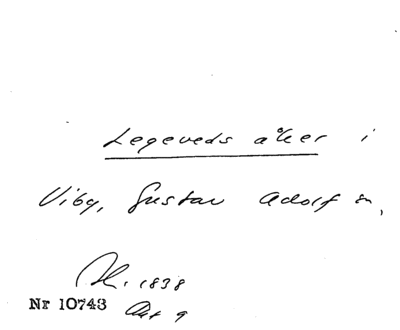 Legeveds åker i
Viby, Gustav Adolf sn,
1838
Nr 10743 Akt 9